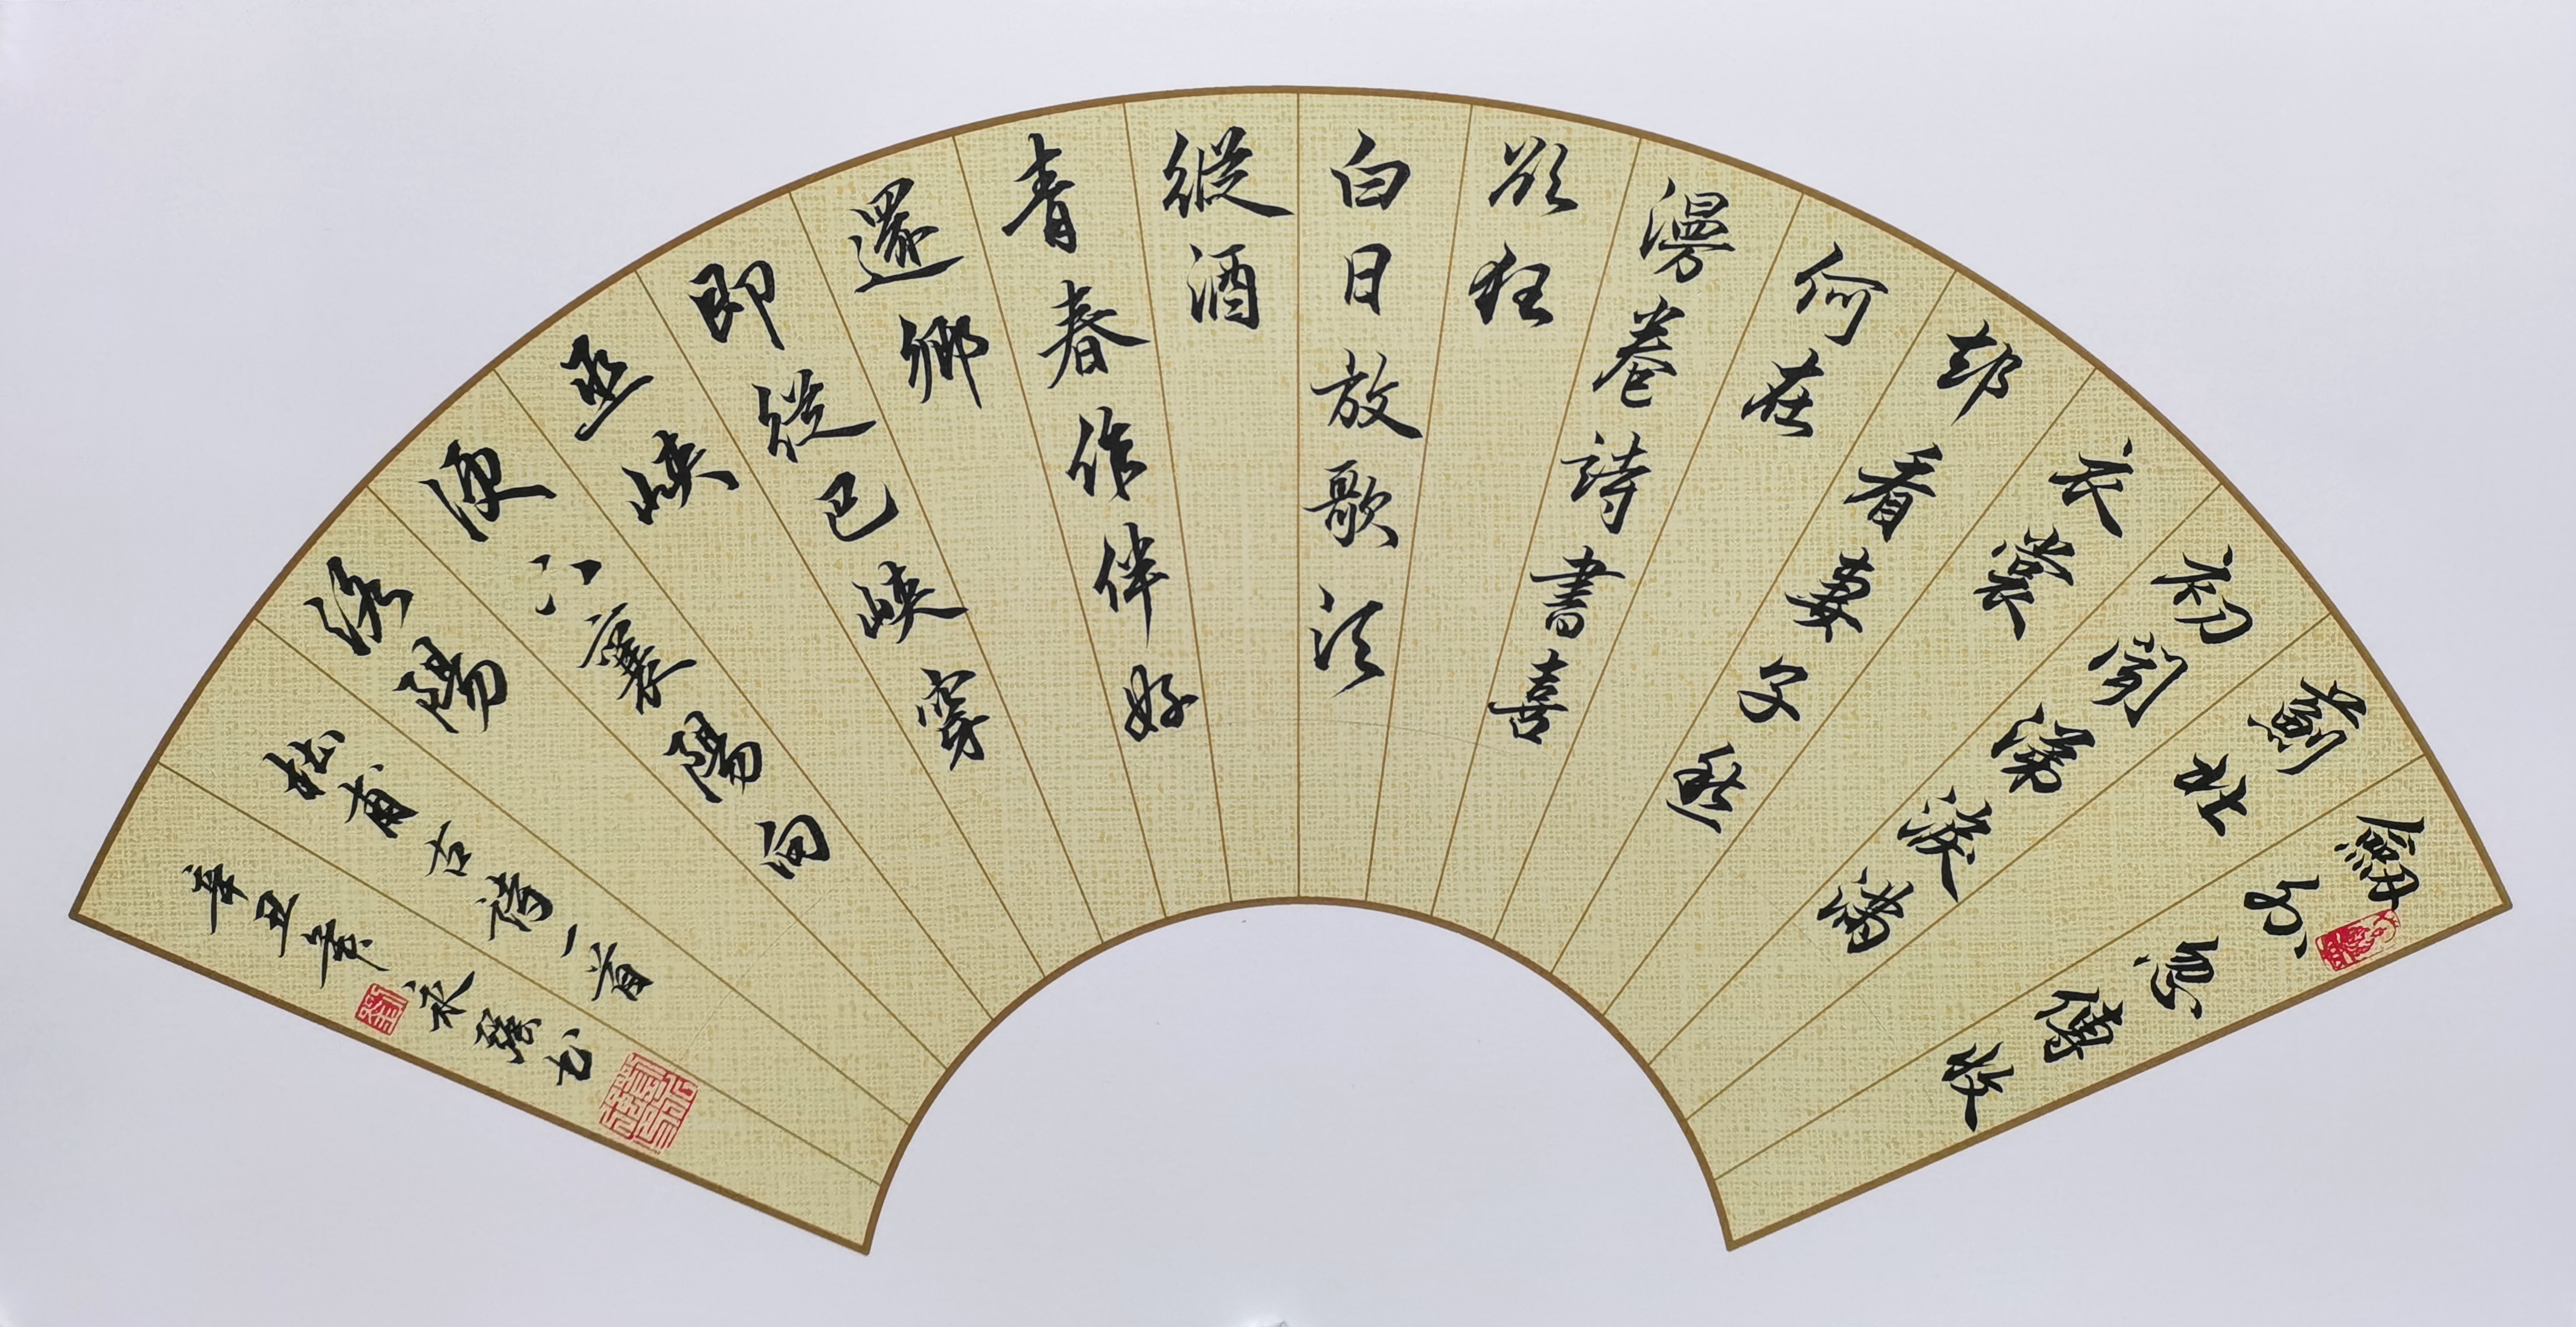 劍外忽傳收
薊北
初聞涕淚滿
衣裳
却看妻子愁
何在
漫卷詩書喜
欲狂
白日放歌須
縱酒
青春作伴好
還鄉
即從巴峽穿
巫峽
便下襄陽向
洛陽
杜甫古詩一首
辛丑书